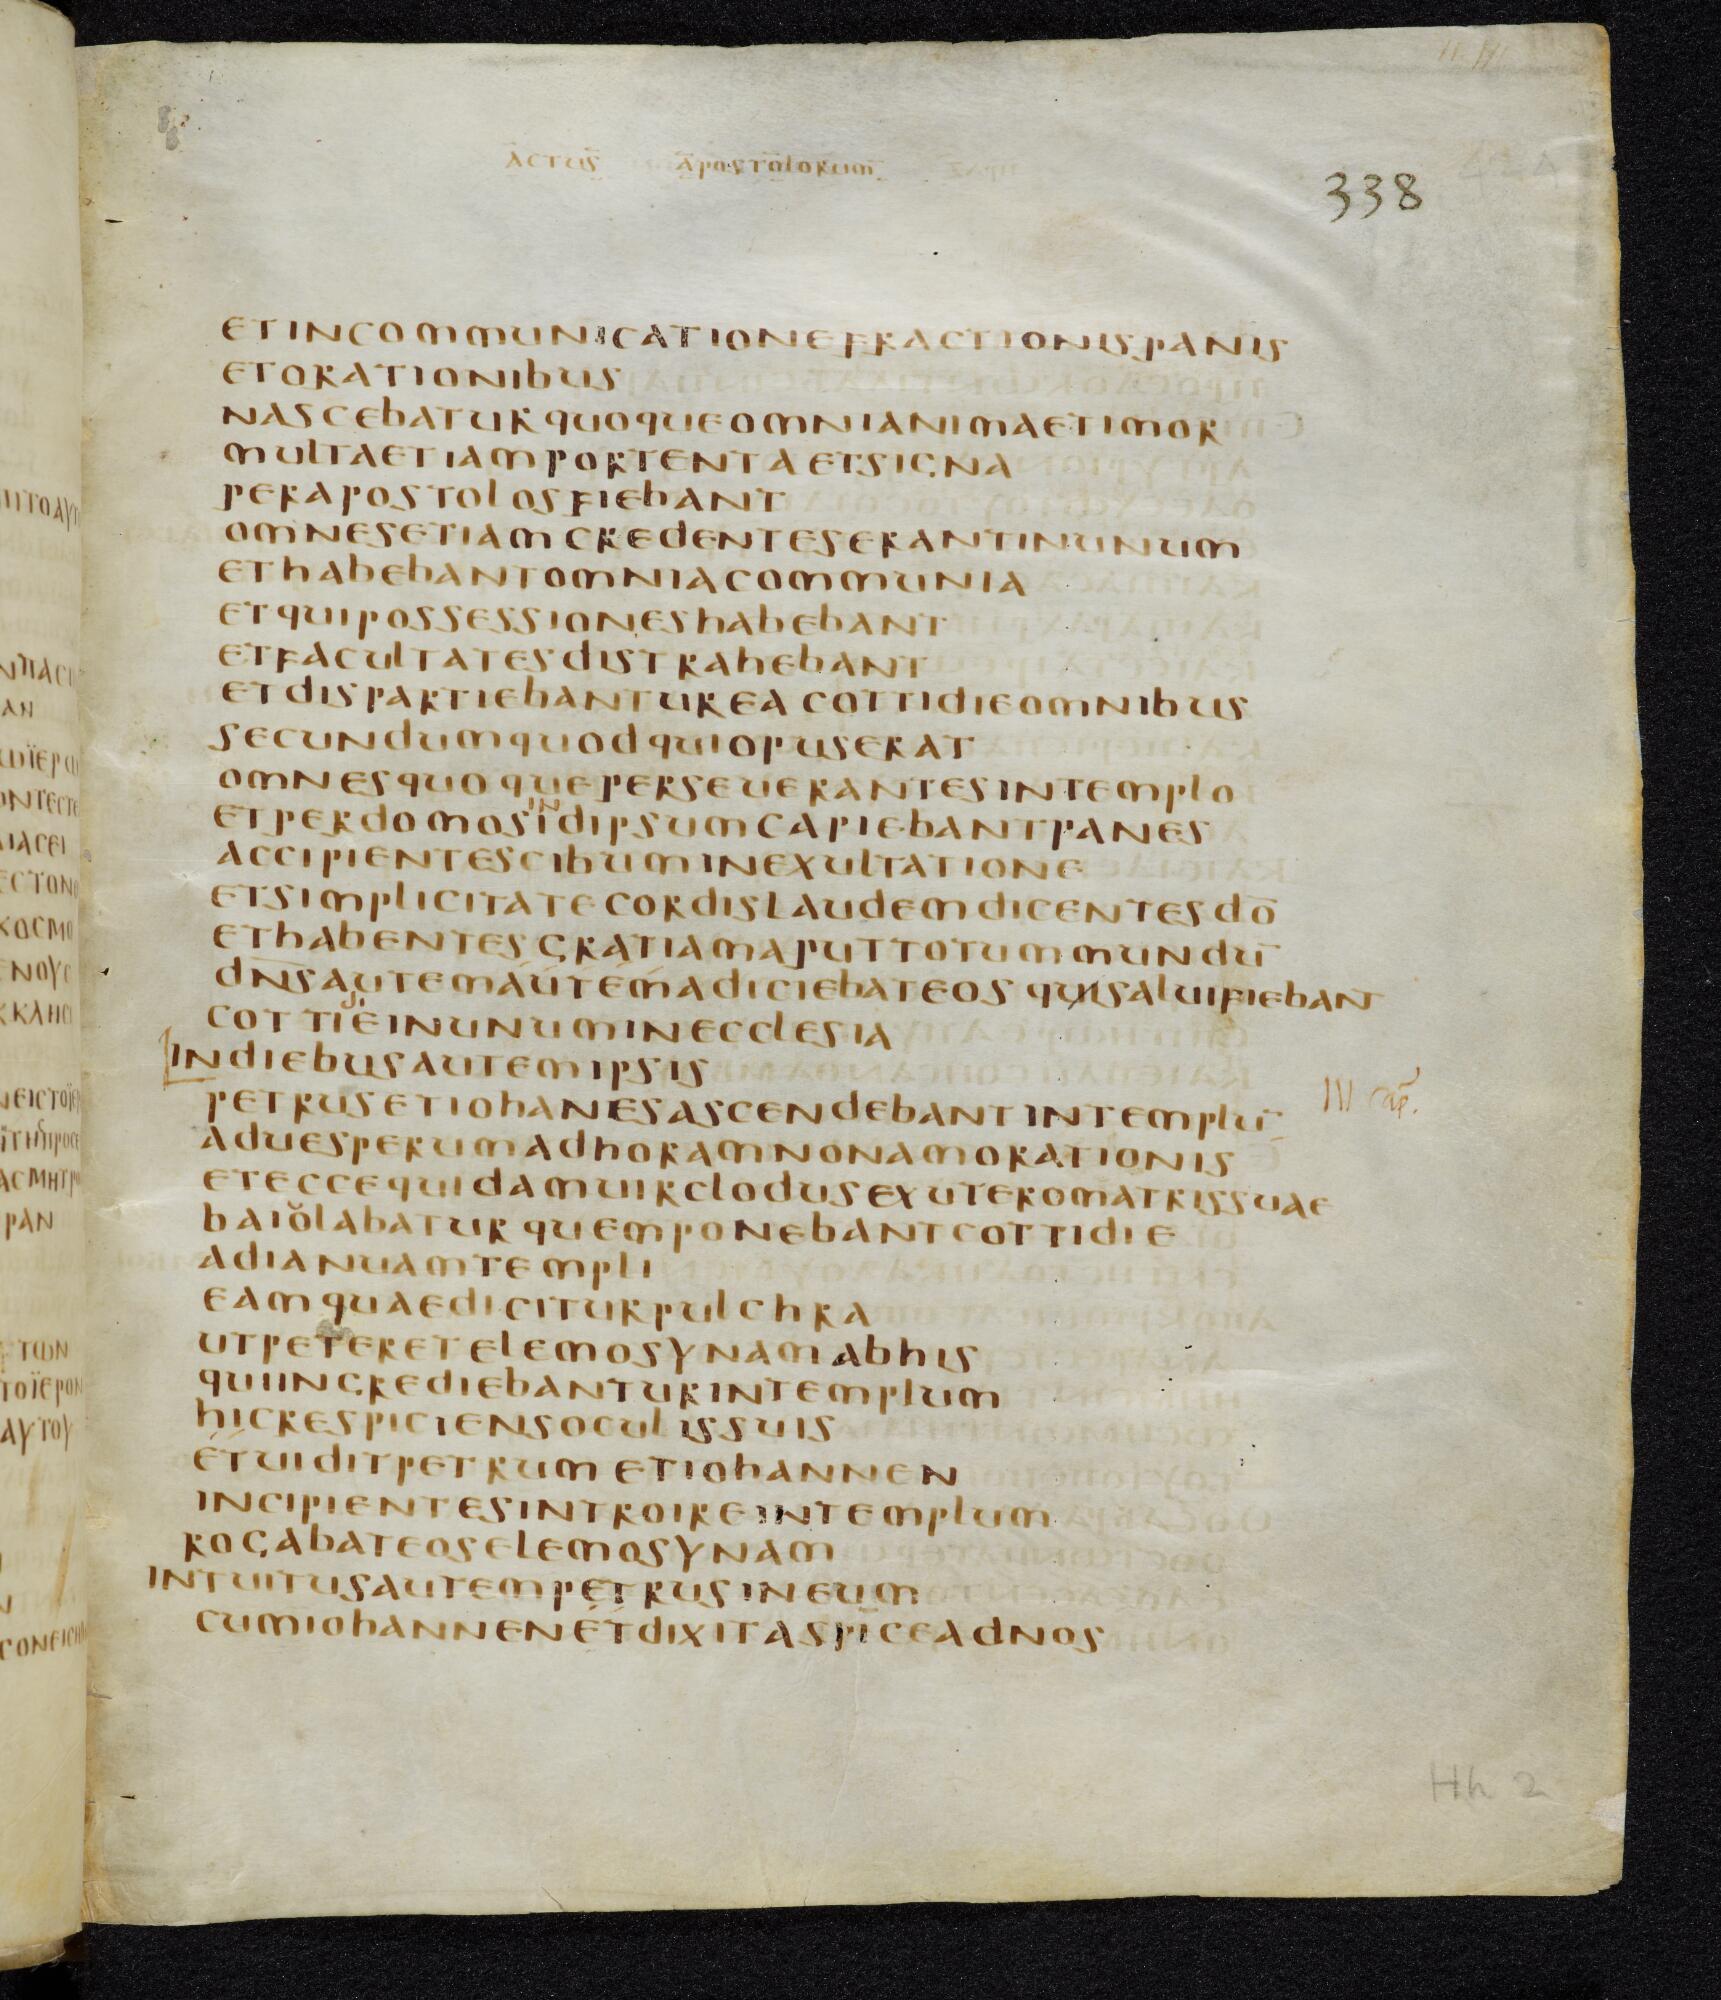 ACTUS APOSTOLORUM
338
ETINCOMMUNICATIONEFRACTIONISPANIS
ETORATIONIBUS
NASCEBATURQUOQUEOMNIANIMAETIMOR
MULTAETIAMPORTENTAETSIGNA
PERAPOSTOLOSFIEBANT
OMNESETIAMCREDENTESERANTINUNUM
ETHABEBANTOMNIACOMMUNIA
ETQUIPOSSESSIONESHABEBANT
ETFACULTATESDISTRAHEBANT
ETDISPARTIEBANTUREACOTTIDIEOMNIBUS
SECUNDUMQUODQUIOPUSERAT
OMNESQUOQUEPERSEUERANTESINTEMPLO
IN
ETPERDOMOSIDIPSUMCAPIEBANTPANES
ACCIPIENTESCIBUMINEXULTATIONE
ETSIMPLICITATECORDISLAUDEMDICENTESDO̅
ETHABENTESGRATIAMAPUTTOTUMMUNDU̅
DN̅SAUTEMAUTEMADICIEBATEOSQUISALUIFIEBANT
COTTIEINUNUMINECCLESIA
INDIEBUSAUTEMIPSIS
PETRUSETIOHANESASCENDEBANTINTEMPLU̅
III
ADUESPERUMADHORAMNONAMORATIONIS
ETECCEQUIDAMUIRCLODUSEXUTEROMATRISSUAE
BAIOLABATURQUEMPONEBANTCOTTIDIE
ADIANUAMTEMPLI
EAMQUAEDICITURPULCHRA
UTPETERETELEMOSYNAMABHIS
QUIINGREDIEBANTURINTEMPLUM
HICRESPICIENSOCULISSUIS
ETUIDITPETRUMETIOHANNEN
INCIPIENTESINTROIREINTEMPLUM
ROGABATEOSELEMOSYNAM
INTUITUSAUTEMPETRUSINEUM
CUMIOHANNENETDIXITASPICEADNOS
Hh 2